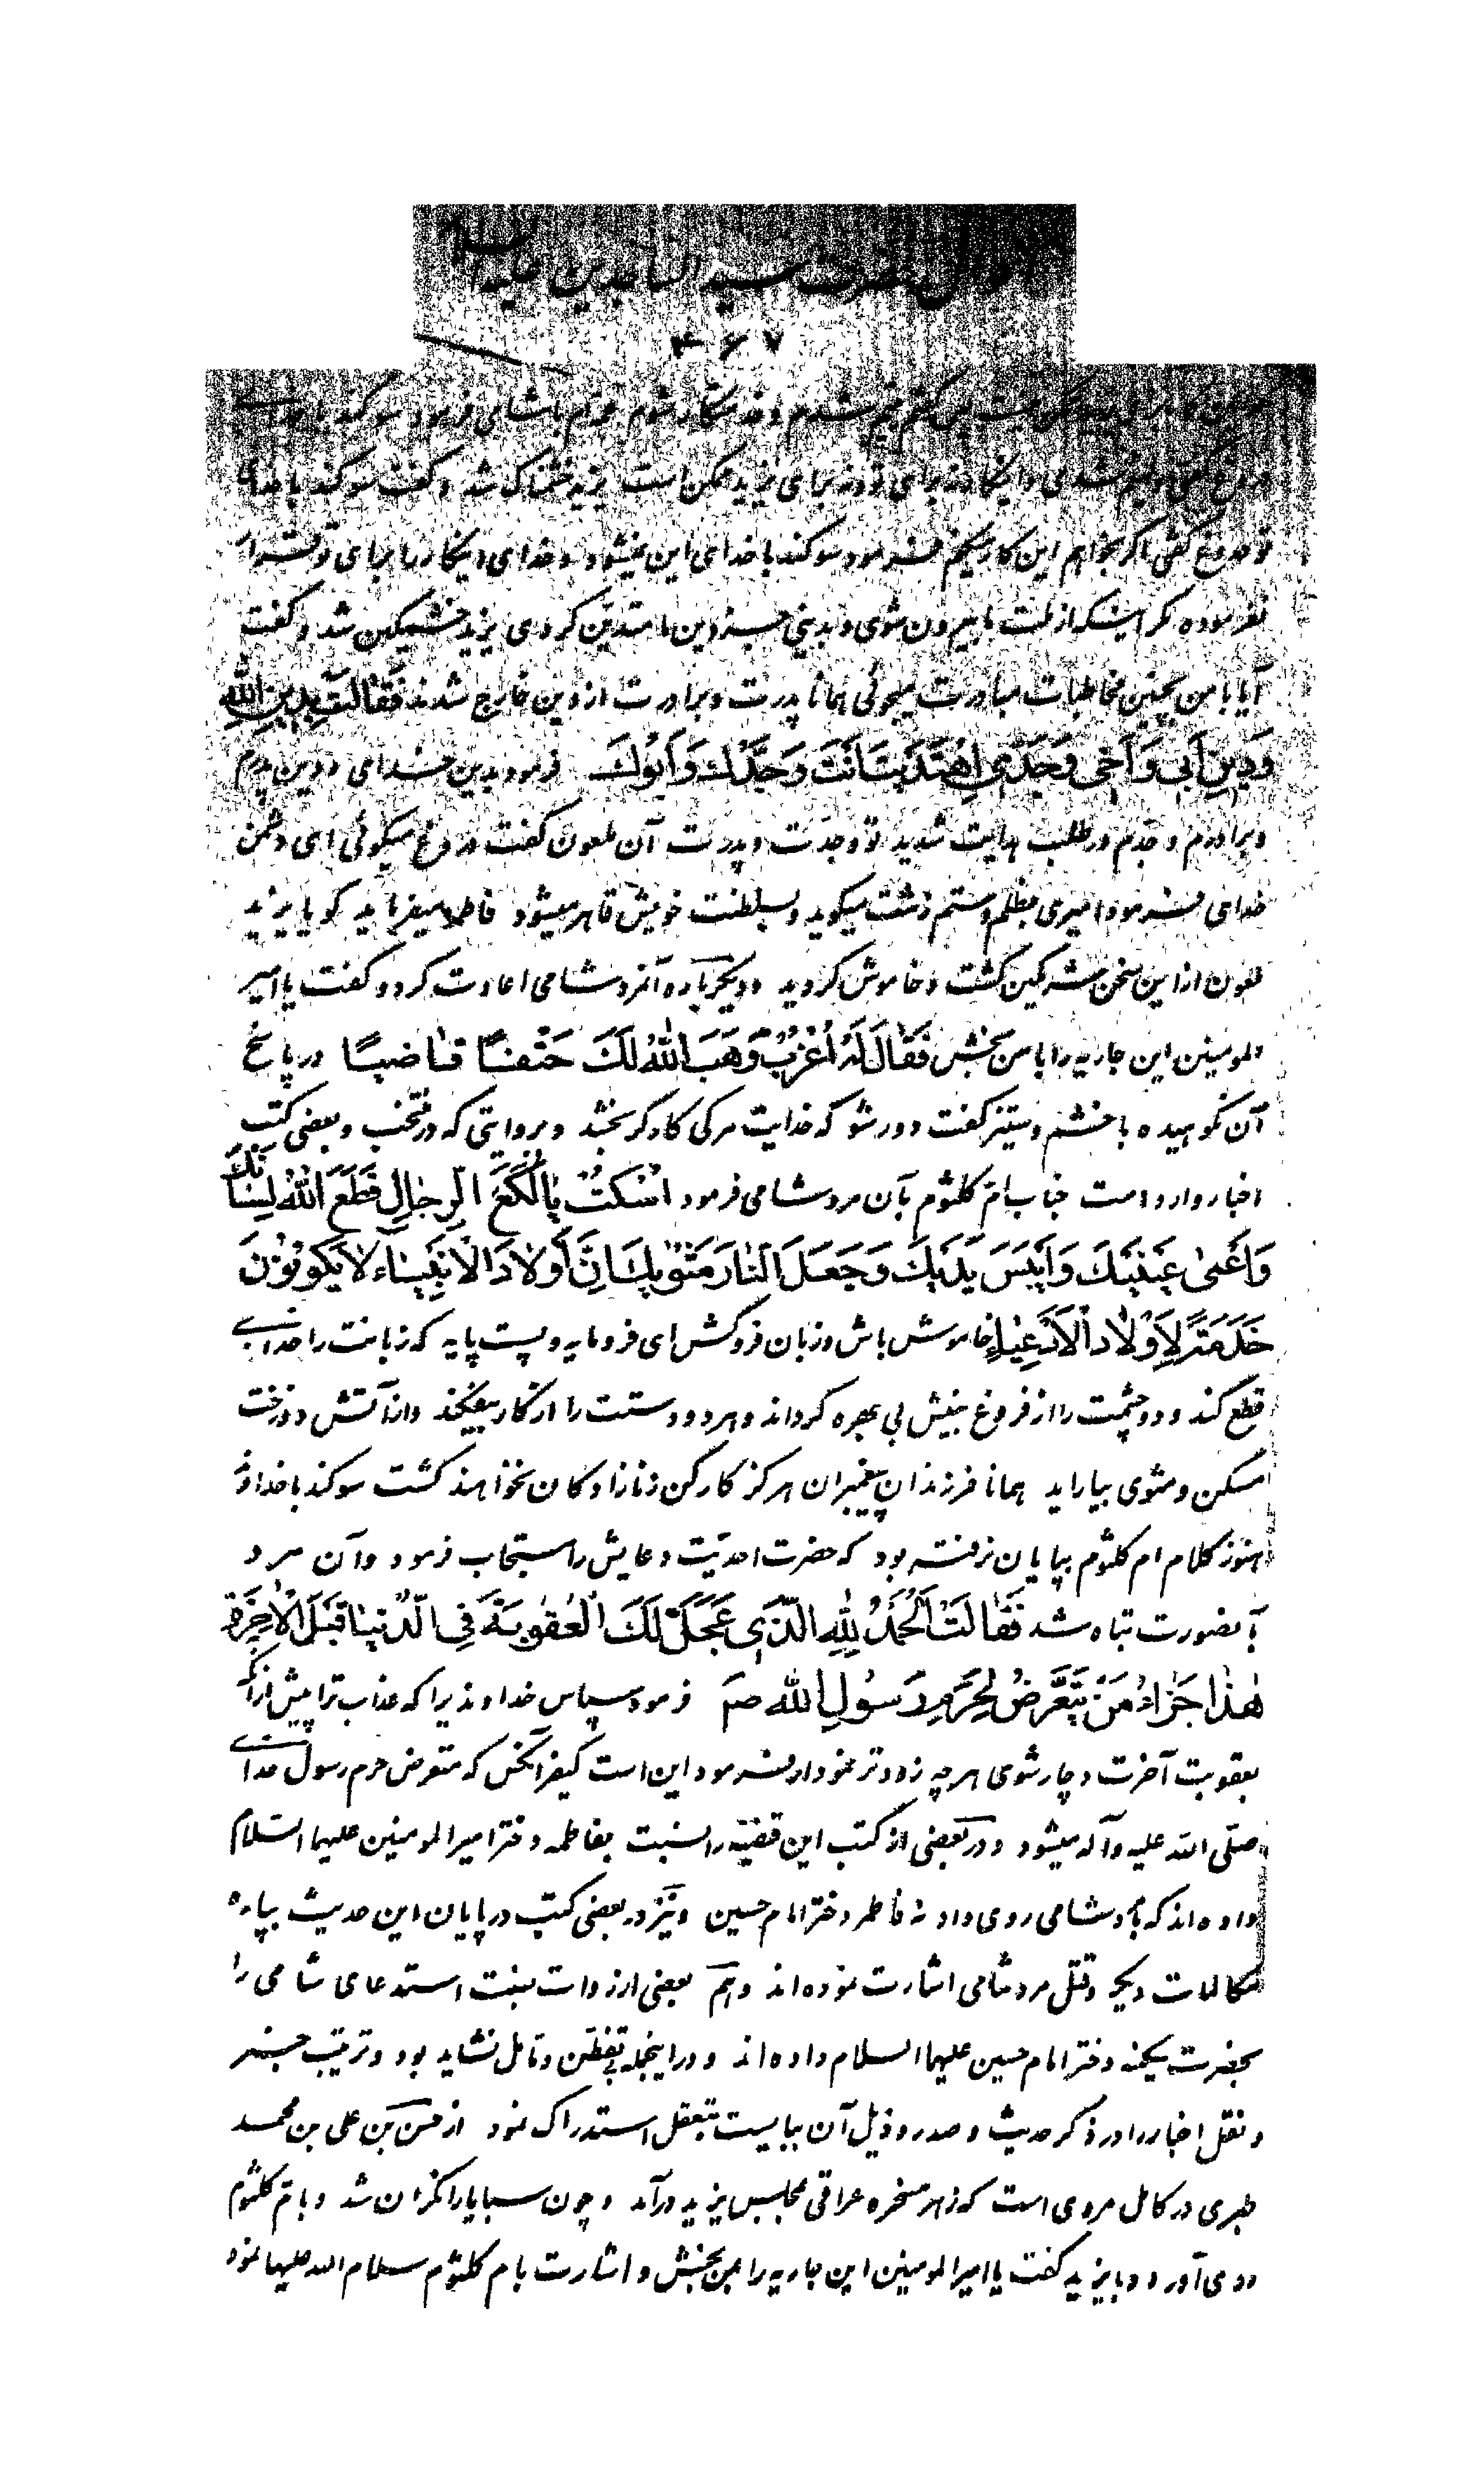 احوال حضرت سید الساجدین علیه السلام
۴۶۷
پس گفتم یتیم شدم و خدمتکار شوم عمه‌ام باشامی فرمود سوکند با خدای
دروغ گفتی و لئیم شدی و اینکار نه برای تو و نه برای یزید ممکن است یزید خشمناک شد و گفت سوکند با خدای
تو دروغ گفتی اگر بخواهم این کار میکنم فرمود سوکند با خدای این نمیشود و خدای اینکار را برای تو قرار
نفرموده مگر اینکه از ملت ما بیرون شوی و بدینی جز دین ما متدین گردی یزید خشمگین شد و گفت
آیا با من بچنین مخاطبات مبادرت میجوئی همانا پدرت و برادرت از دین خارج شدند فَقالَتْ بِدینِ اللهِ
وَدینِ اَبی وَاَخی وَجَدّی اِهْتَدَیْتَ اَنْتَ وَجَدُّكَ وَاَبُوكَ فرمود بدین خدای و دین پدرم
و برادرم و جدم در طلب هدایت شدید تو و جدت و پدرت آن ملعون گفت دروغ میگوئی ای دشمن
خدای فرمود امیری بظلم و ستم زشت میگوید و بسلطنت خویش قاهر میشود فاطمه میفرماید گویا یزید
ملعون از این سخن شرمگین گشت و خاموش گردید و دیگرباره آنمرد شامی اعادت کرد و گفت یا امیر
المومنین این جاریه را با من بخش فَقالَ لَهُ اُعْزُبْ وَهَبَ اللهُ لَكَ حَتْفاً قاضِیاً در پاسخ
آن نکوهیده با خشم و ستیز گفت دور شو که خدایت مرگی کارگر بخشد و بروایتی که در منتخب و بعضی کتب
اخبار وارد است جناب ام کلثوم بآن مرد شامی فرمود اُسْكُتْ یا لُكَعَ الرِّجالِ قَطَعَ اللهُ لِسانَكَ
وَاَعْمی عَیْنَیْكَ وَاَیْبَسَ یَدَیْكَ وَجَعَلَ النّارَ مَثْویكَ اِنَّ اَوْلادَ الْاَنْبِیاءِ لا یَكُونُونَ
خَدَمَةً لِاَوْلادِ الْاَدْعِیاءِ خاموش باش و زبان فروکش ای فرومایه و پست پایه که زبانت را خدای
قطع کند و دو چشمت را از فروغ بینش بی بهره گرداند و هر دو دستت را از کار بیفکند و از آتش دوزخت
مسکن و مثوی بیاراید همانا فرزندان پیغمبران هرگز کارکن زنازادگان نخواهند گشت سوکند با خداوند
هنوز کلام ام کلثوم بپایان نرفته بود که حضرت احدیت دعایش را مستجاب فرمود و آن مرد
بآنصورت تباه شد فَقالَتْ اَلْحَمْدُ لِلّهِ الَّذی عَجَّلَ لَكَ الْعُقُوبَةَ فِی الدُّنْیا قَبْلَ الْاخِرَةِ
هٰذا جَزاءُ مَنْ یَتَعَرَّضُ لِحَرَمِ رَسُولِ الله صم فرمود سپاس خداوندیرا که عذاب ترا پیش از آنکه
بعقوبت آخرت دچار شوی هر چه زودتر نمودار فرمود این است کیفر آنکس که متعرض حرم رسول خدای
صلی الله علیه و آله میشود و در بعضی از کتب این قضیه را نسبت بفاطمه دختر امیر المومنین علیهما السلام
داده اند که با مرد شامی روی داد نه فاطمه دختر امام حسین و نیز در بعضی کتب در پایان این حدیث بپاره
مکالمات دیگر و قتل مرد شامی اشارت نموده اند و هم بعضی از روات نسبت استدعای شامی را
بحضرت سکینه دختر امام حسین علیهما السلام داده اند و در اینجمله بی تفطن و تامل نشاید بود و ترتیب خبر
و نقل اخبار را در ذکر حدیث و صدر و ذیل آن ببایست بتعقل استدراک نمود از حسن بن علی بن محمد
طبری در کامل مروی است که زهیر مسخره عراقی بمجلس یزید درآمد و چون سبایا را نگران شد و بام کلثوم
روی آورد و با یزید گفت یا امیر المومنین این جاریه را بمن بخش و اشارت بام کلثوم سلام الله علیها نمود